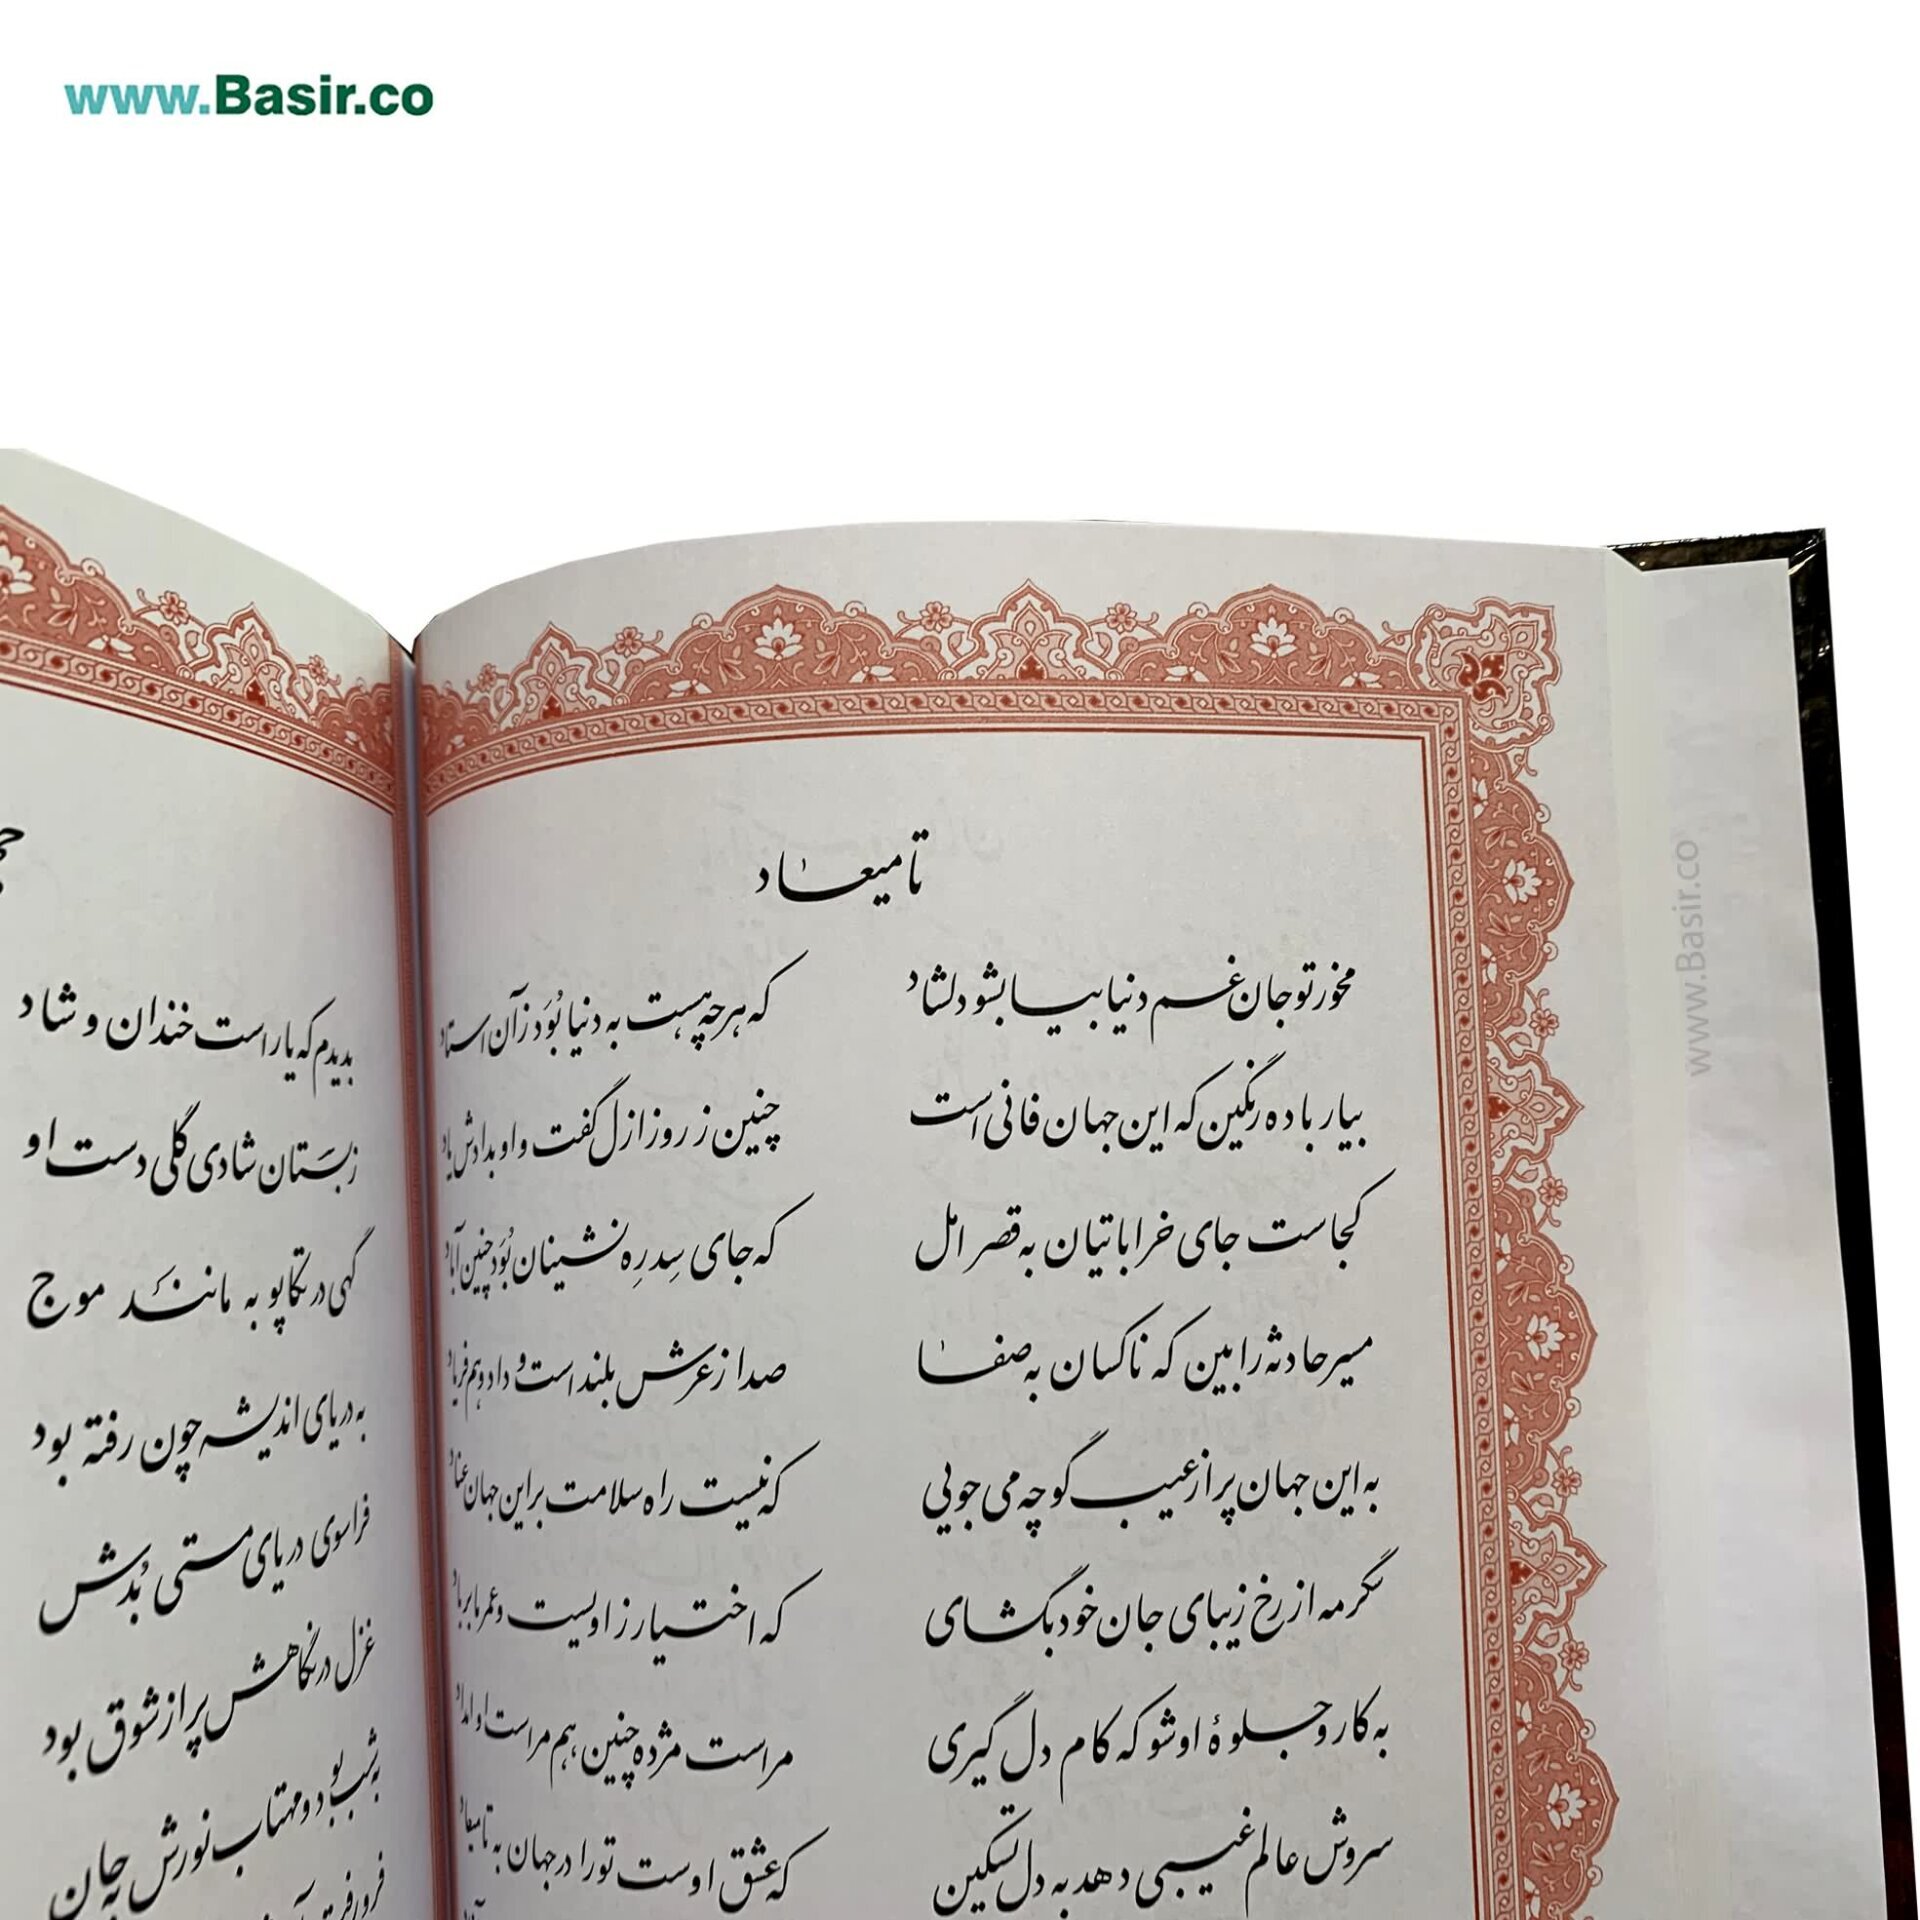 www.Basir.co
تا میعاد
مخور تو جان غم دنیا بیا بشو دلشاد که هر چه هست به دنیا بُوَد ز آن استاد
بیار باده رنگین که این جهان فانی است چنین ز روز ازل گفت و او بدادش یاد
کجاست جای خراباتیان به قصر امل که جای سِدرِه نشینان بُوَد چنین آباد
مسیر حادثه را بین که ناکسان به صفا صدا ز عرش بلند است و داد و هم فریاد
به این جهان پر از عیب گو چه می جویی که نیست راه سلامت بر این جهان عناد
نگر مه از رخ زیبای جان خود بگشای که اختیار ز او نیست و عمر ما بر باد
به کار و جلوهٔ او شو که کام دل گیری مراست مژده چنین، هم مراست او امداد
سروش عالم غیبی دهد به دل تسکین که عشق اوست تو را در جهان به تا میعاد
بدیدم که یار است خندان و شاد
ز بَستان شادی گلی دست او
گهی در تکاپو به مانند موج
به دریای اندیشه چون رفته بود
فراسوی دریای مستی بُدش
غزل در نگاهش پر از شوق بود
به شب بود و مهتاب نورش به جان
www.Basir.co